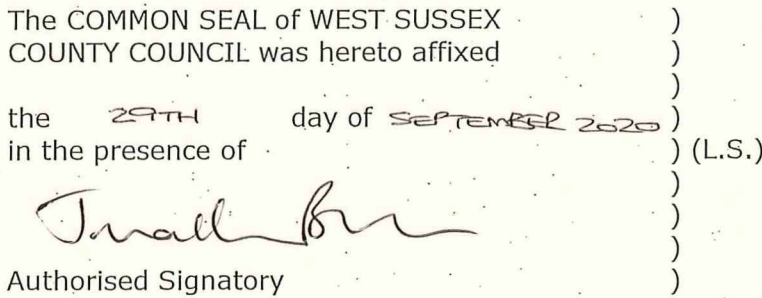 The COMMON SEAL of WEST SUSSEX )
COUNTY COUNCIL was hereto affixed )
)
the 29TH day of SEPTEMBER 2020 )
in the presence of ) (L.S.)
)
)
)
Authorised Signatory )